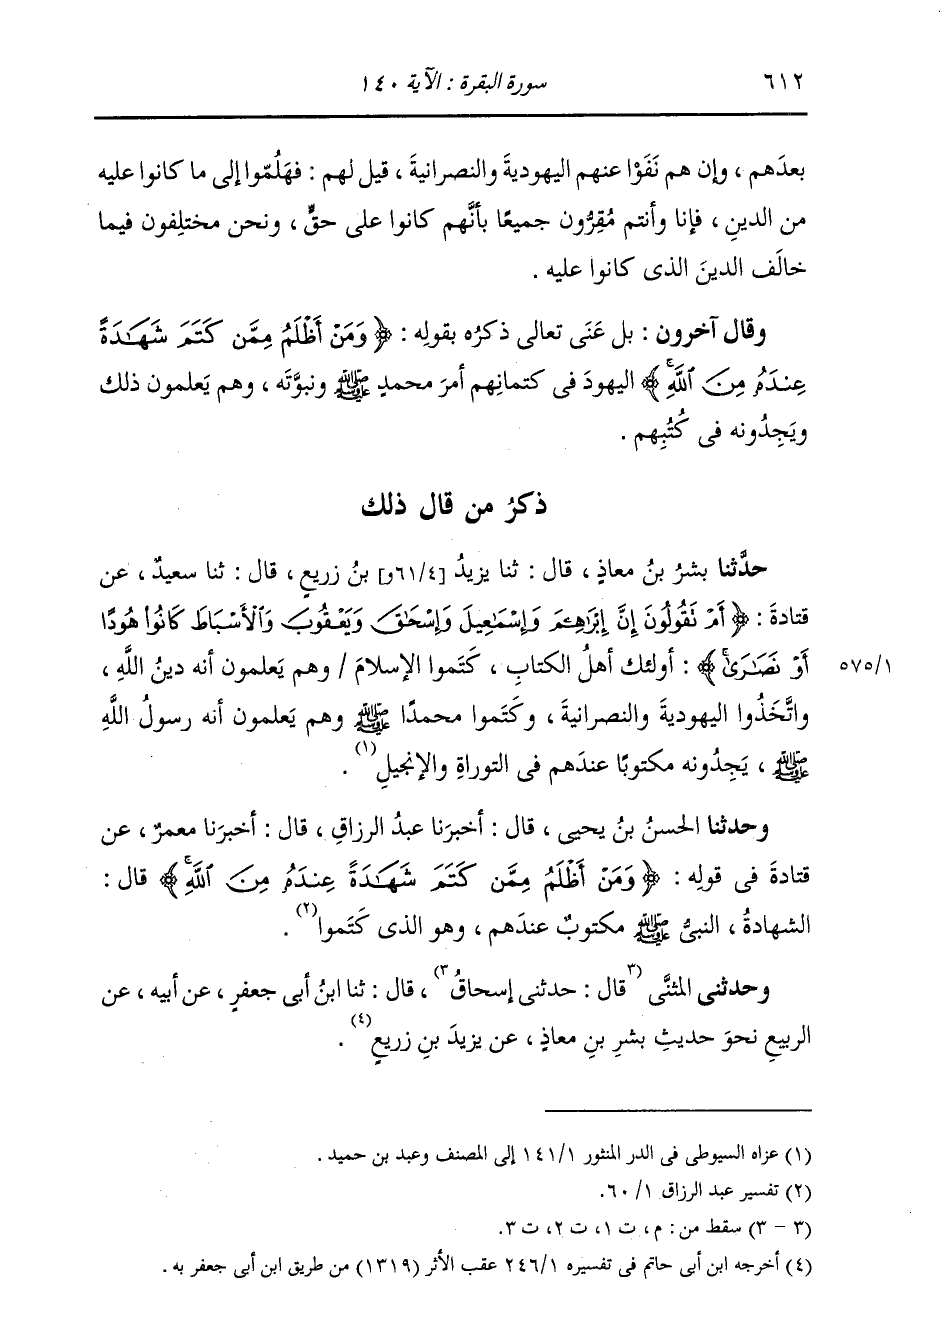 ٦١٢ سورة البقرة : الآية ١٤٠
بعدَهم ، وإن هم نَفَوْا عنهم اليهوديةَ والنصرانيةَ ، قيل لهم : فهَلُمّوا إلى ما كانوا عليه
من الدينِ ، فإنا وأنتم مُقِرُّون جميعًا بأنَّهم كانوا على حقٍّ ، ونحن مختلِفون فيما
خالَف الدينَ الذى كانوا عليه .
وقال آخرون : بل عَنَى تعالى ذكرُه بقولِه : ﴿ وَمَنْ أَظْلَمُ مِمَّن كَتَمَ شَهَٰدَةً
عِندَهُۥ مِنَ ٱللَّهِۗ ﴾ اليهودَ فى كتمانِهم أمرَ محمدٍ ﷺ ونبوَّتَه ، وهم يَعلمون ذلك
ويَجِدُونه فى كُتُبِهم .
ذكرُ من قال ذلك
حدَّثنا بشرُ بنُ معاذٍ ، قال : ثنا يزيدُ [٦١/٤و] بنُ زريعٍ ، قال : ثنا سعيدٌ ، عن
قتادةَ : ﴿ أَمْ نَقُولُونَ إِنَّ إِبْرَٰهِـۧمَ وَإِسْمَٰعِيلَ وَإِسْحَٰقَ وَيَعْقُوبَ وَٱلْأَسْبَاطَ كَانُوا۟ هُودًا
أَوْ نَصَٰرَىٰۗ ﴾ : أولئك أهلُ الكتابِ ، كَتَموا الإسلامَ / وهم يَعلمون أنه دينُ اللَّهِ ، ٥٧٥/١
واتَّخَذُوا اليهوديةَ والنصرانيةَ ، وكَتَموا محمدًا ﷺ وهم يَعلمون أنه رسولُ اللَّهِ
ﷺ ، يَجِدُونه مكتوبًا عندَهم فى التوراةِ والإنجيلِ(١) .
وحدثنا الحسنُ بنُ يحيى ، قال : أخبرَنا عبدُ الرزاقِ ، قال : أخبرَنا معمرٌ ، عن
قتادةَ فى قولِه : ﴿ وَمَنْ أَظْلَمُ مِمَّن كَتَمَ شَهَٰدَةً عِندَهُۥ مِنَ ٱللَّهِۗ ﴾ قال :
الشهادةُ ، النبىُّ ﷺ مكتوبٌ عندَهم ، وهو الذى كَتَموا(٢) .
وحدثنى المثنَّى (٣قال : حدثنى إسحاقُ٣) ، قال : ثنا ابنُ أبى جعفرٍ ، عن أبيه ، عن
الربيعِ نحوَ حديثِ بشرِ بنِ معاذٍ ، عن يزيدَ بنِ زريعٍ(٤) .
(١) عزاه السيوطى فى الدر المنثور ١٤١/١ إلى المصنف وعبد بن حميد .
(٢) تفسير عبد الرزاق ١/ ٦٠.
(٣ - ٣) سقط من : م، ت ١، ت ٢، ت ٣.
(٤) أخرجه ابن أبى حاتم فى تفسيره ٢٤٦/١ عقب الأثر (١٣١٩) من طريق ابن أبى جعفر به .